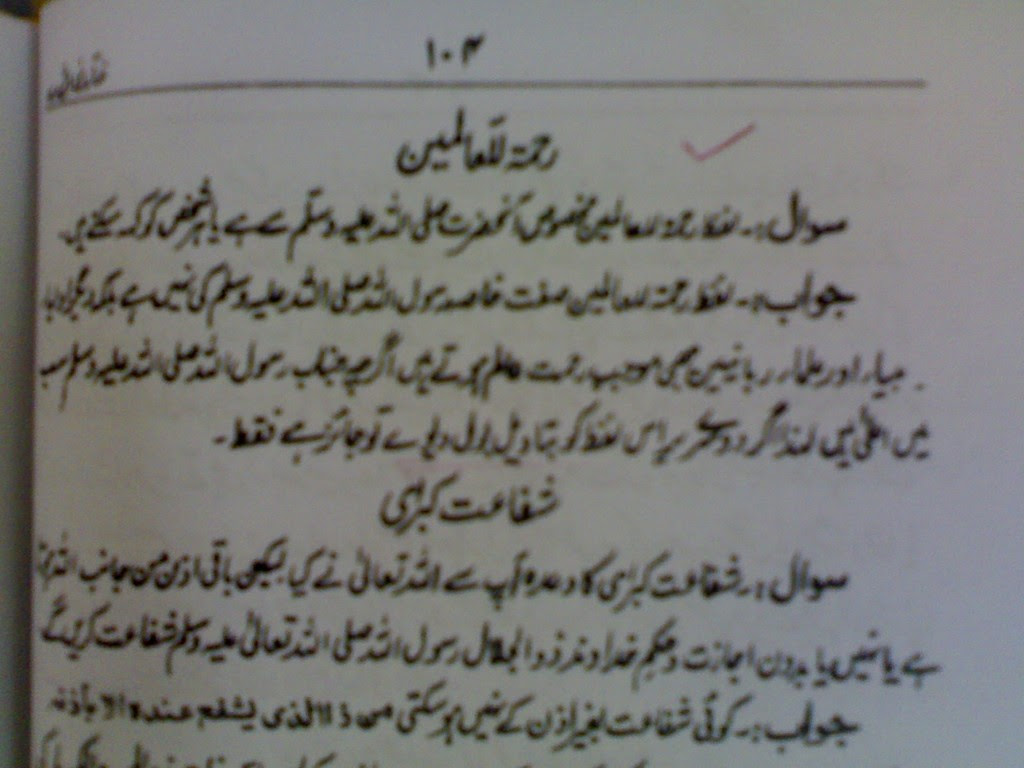 ۱۰۴
رحمۃ للعالمین
سوال:۔ لفظ رحمۃ للعالمین مخصوص آنحضرت صلی اللہ علیہ وسلم سے ہے یا ہر شخص کو کہہ سکتے ہیں۔
جواب:۔ لفظ رحمۃ للعالمین صفت خاصہ رسول اللہ صلی اللہ علیہ وسلم کی نہیں ہے بلکہ دیگر اولیا
ـبیاء اور علماء ربانیین بھی موجب رحمت عالم ہوتے ہیں اگرچہ جناب رسول اللہ صلی اللہ علیہ وسلم سب
میں اعلیٰ ہیں لہٰذا اگر دوسرے پر اس لفظ کو بتاویل بول دیوے تو جائز ہے فقط۔
شفاعت کبرٰی
سوال:۔ شفاعت کبرٰی کا وعدہ آپ سے اللہ تعالیٰ نے کیا لیکن باقی اذن من جانب اللہ
ہے یا نہیں یا بدون اجازت و حکم خداوند ذوالجلال رسول اللہ صلی اللہ تعالیٰ علیہ وسلم شفاعت کریں گے
جواب:۔ کوئی شفاعت بغیر اذن کے نہیں ہو سکتی من ذا الذی یشفع عندہ الا باذنہ